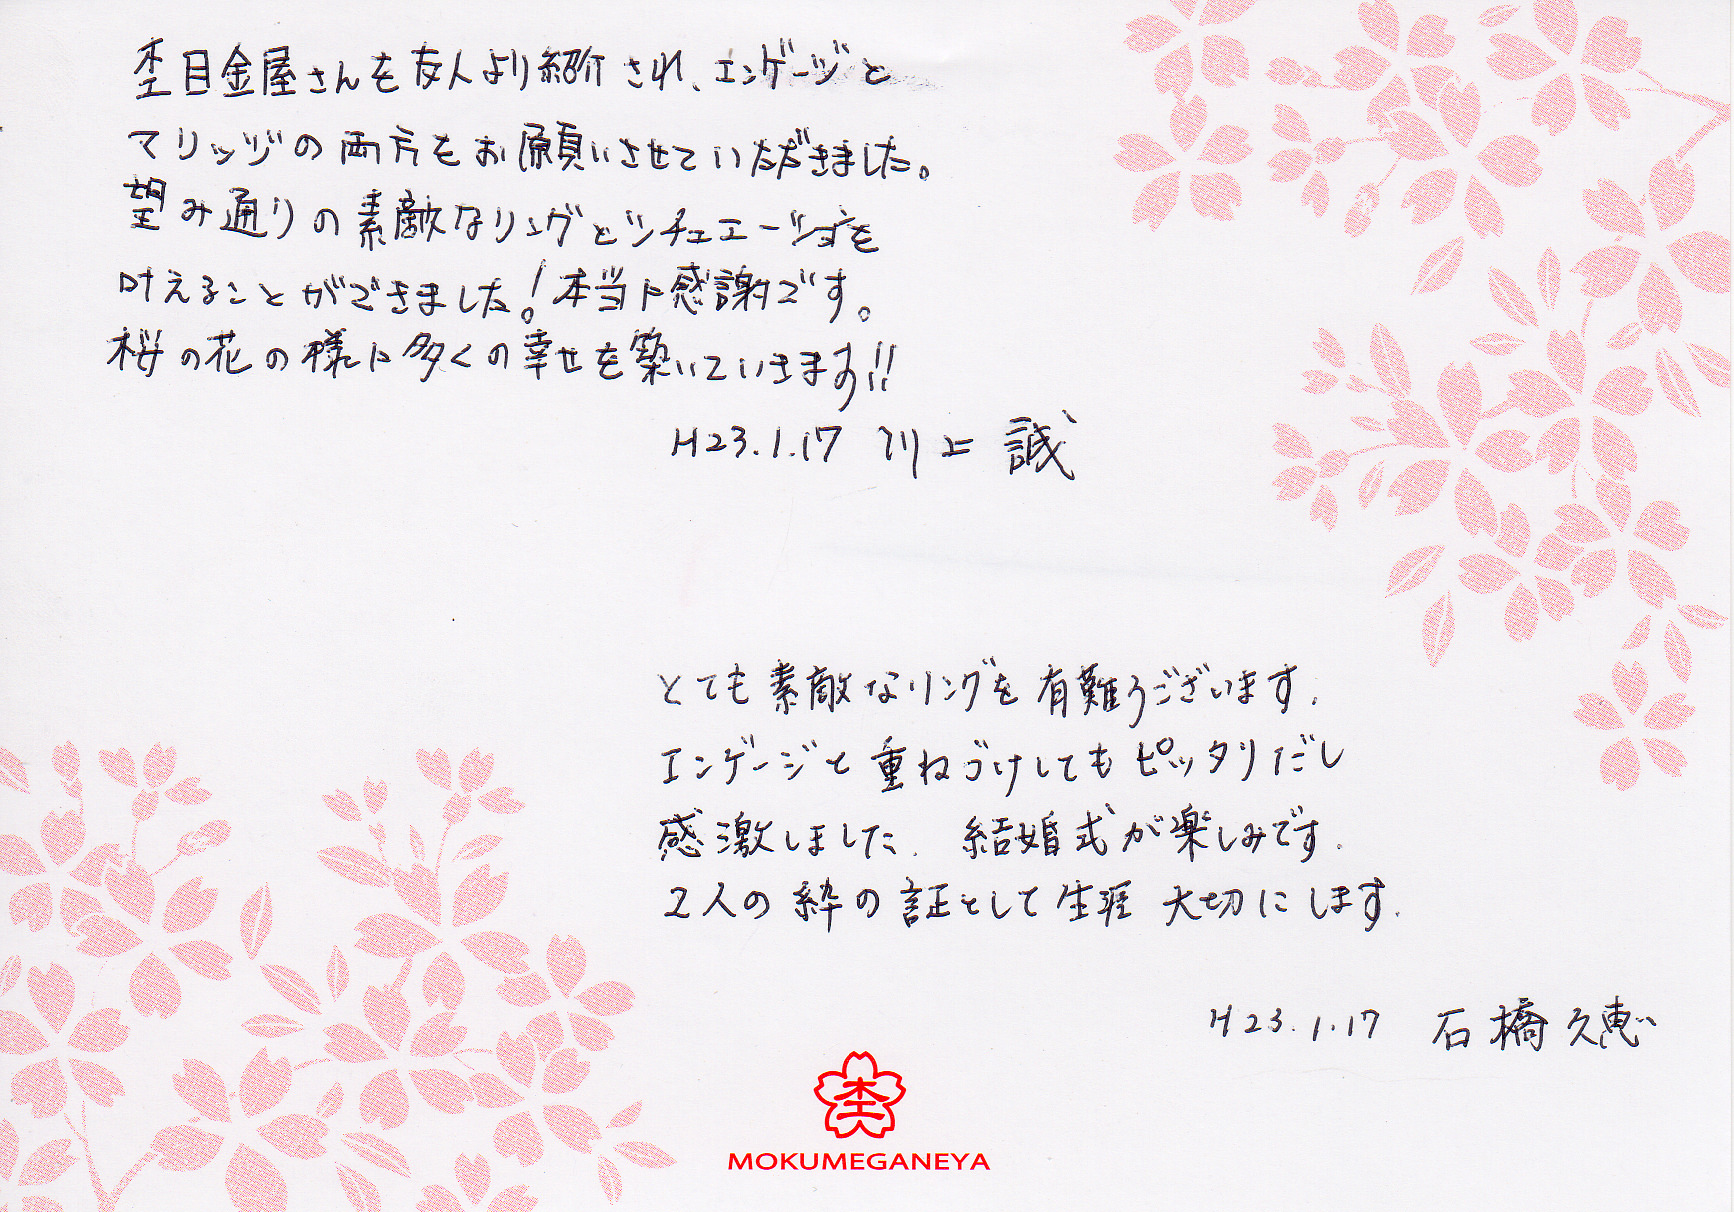 杢目金屋さんを友人より紹介され、エンゲージと
マリッジの両方をお願いさせていただきました。
望み通りの素敵なリングとシチュエーションを
叶えることができました!本当に感謝です。
桜の花の様に多くの幸せを築いていきます!!
H23.1.17 川上 誠
とても素敵なリングを有難うございます.
エンゲージと重ねづけしてもピッタリだし
感激しました. 結婚式が楽しみです.
2人の絆の証として生涯 大切にします.
H23.1.17 石橋久恵
杢
MOKUMEGANEYA